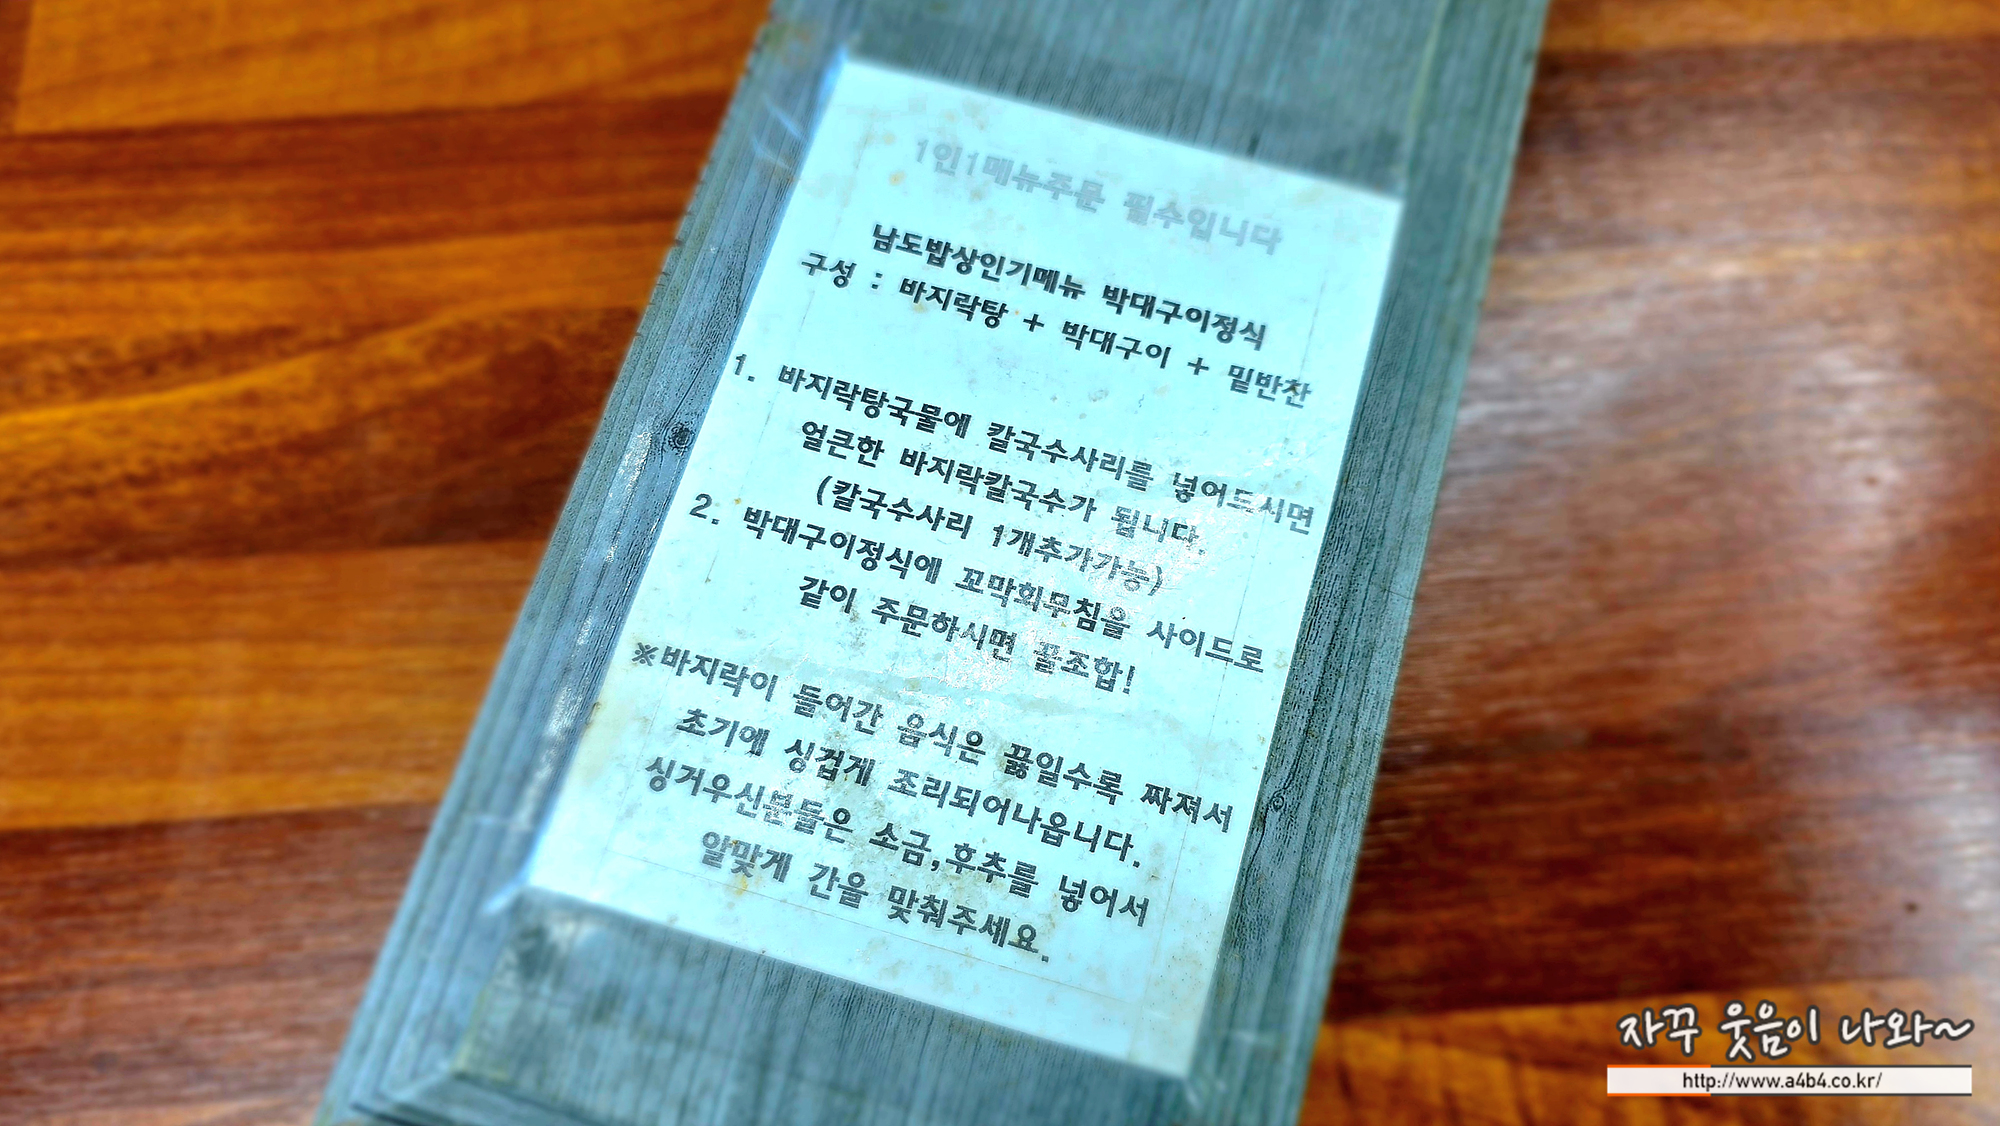 1인1메뉴주문 필수입니다
남도밥상인기메뉴 박대구이정식
구성 : 바지락탕 + 박대구이 + 밑반찬
1. 바지락탕국물에 칼국수사리를 넣어드시면
얼큰한 바지락칼국수가 됩니다.
(칼국수사리 1개추가가능)
2. 박대구이정식에 꼬막회무침을 사이드로
같이 주문하시면 꿀조합!
※바지락이 들어간 음식은 끓일수록 짜져서
초기에 싱겁게 조리되어나옵니다.
싱거우신분들은 소금,후추를 넣어서
알맞게 간을 맞춰주세요.
자꾸 웃음이 나와~
http://www.a4b4.co.kr/